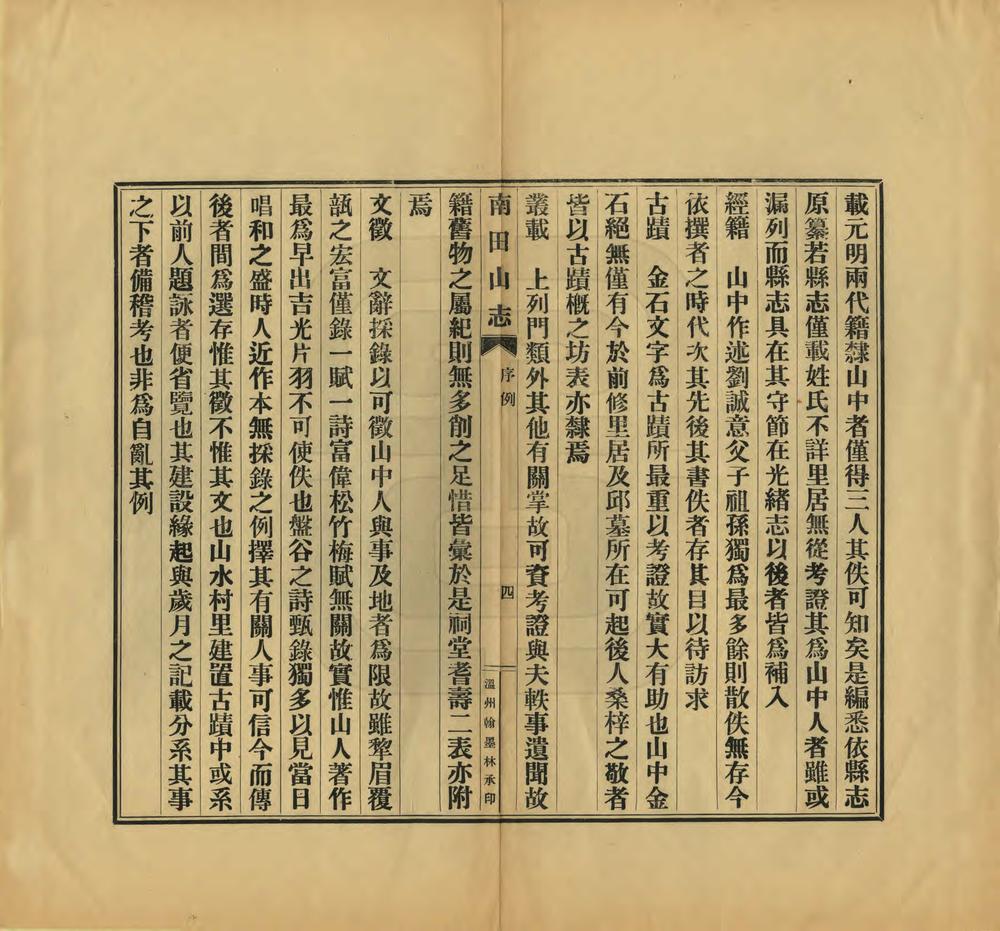 載元明兩代籍隸山中者僅得三人其佚可知矣是編悉依縣志
原纂若縣志僅載姓氏不詳里居無從考證其為山中人者雖或
漏列而縣志具在其守節在光緒志以後者皆為補入
經籍　山中作述劉誠意父子祖孫獨為最多餘則散佚無存今
依撰者之時代次其先後其書佚者存其目以待訪求
古蹟　金石文字為古蹟所最重以考證故實大有助也山中金
石絕無僅有今於前修里居及邱墓所在可起後人桑梓之敬者
皆以古蹟概之坊表亦隸焉
叢載　上列門類外其他有關掌故可資考證與夫軼事遺聞故
南田山志　序例　四　溫州翰墨林承印
籍舊物之屬紀則無多削之足惜皆彙於是祠堂耆壽二表亦附
焉
文徵　文辭採錄以可徵山中人與事及地者為限故雖犂眉覆
瓿之宏富僅錄一賦一詩富偉松竹梅賦無關故實惟山人著作
最為早出吉光片羽不可使佚也盤谷之詩甄錄獨多以見當日
唱和之盛時人近作本無採錄之例擇其有關人事可信今而傳
後者間為選存惟其徵不惟其文也山水村里建置古蹟中或系
以前人題詠者便省覽也其建設緣起與歲月之記載分系其事
之下者備稽考也非為自亂其例